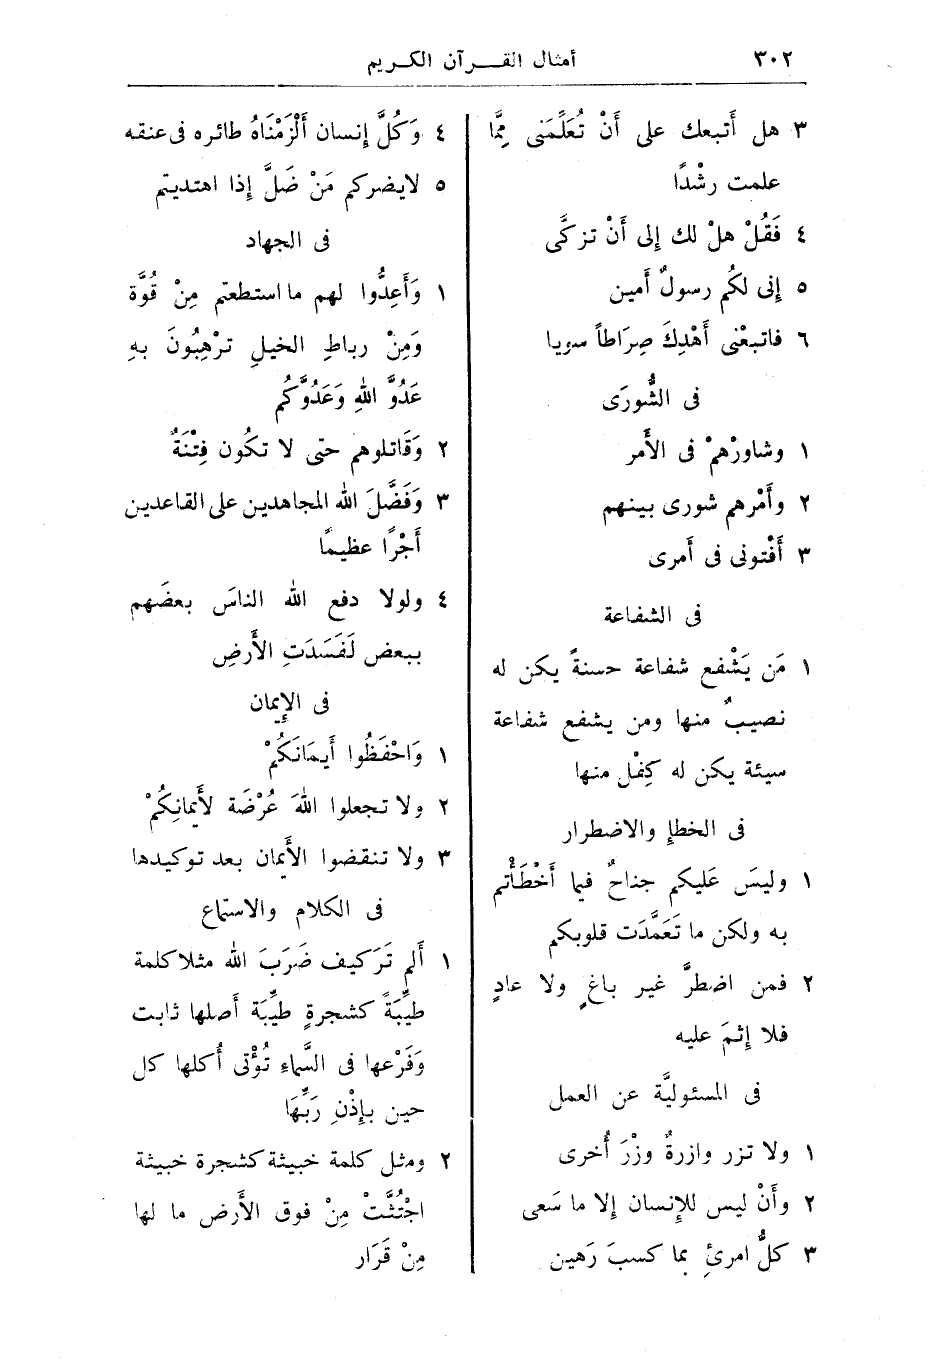 ٣٠٢
أمثال القرآن الكريم
٣ هل أَتبعك على أَنْ تُعَلِّمَنى مِمَّا
علمت رشْدًا
٤ فَقُلْ هلْ لك إلى أَنْ تزكَّى
٥ إنى لكُم رسولٌ أَمين
٦ فاتبعْنى أَهْدِكَ صِرَاطاً سويا
فى الشُّورَى
١ وشاورْهمْ فى الأَمر
٢ وأَمْرهم شورى بينهم
٣ أَفْتونى فى أَمرى
فى الشفاعة
١ مَن يَشْفع شفاعة حسنةً يكن له
نصيبٌ منها ومن يشفع شفاعة
سيئة يكن له كِفْل منها
فى الخطإ والاضطرار
١ وليسَ عَليكم جناحٌ فيما أَخْطَأْتم
به ولكن ما تَعَمَّدَت قلوبكم
٢ فمن اضطرَّ غير باغٍ ولا عادٍ
فلا إثمَ عليه
فى المسئوليَّة عن العمل
١ ولا تزر وازرةٌ وزْرَ أُخرى
٢ وأَنْ ليس للإنسان إلا ما سَعى
٣ كلُّ امرئٍ بما كسبَ رَهين
٤ وَكُلَّ إنسان أَلْزَمْنَاهُ طائره فى عنقه
٥ لايضركم مَنْ ضَلَّ إذا اهتديتم
فى الجهاد
١ وَأَعِدُّوا لهم ما استطعتم مِنْ قُوَّة
وَمِنْ رباطِ الخيلِ ترْهِبُونَ بهِ
عَدُوَّ اللهِ وَعَدُوَّكُم
٢ وَقَاتلوهم حتى لا تكُون فِتْنَةٌ
٣ وَفَضَّلَ الله المجاهدين على القاعدين
أَجْرًا عظيمًا
٤ ولولا دفع الله الناسَ بعضَهم
ببعض لَفَسَدَتِ الأَرضِ
فى الإيمان
١ وَاحْفَظُوا أَيمَانَكُمْ
٢ ولا تجعلوا اللهَ عُرْضَة لأَيمانِكُمْ
٣ ولا تنقضوا الأَيمان بعد توكيدها
فى الكلام والاستماع
١ أَلم تَرَ كيف ضَرَبَ الله مثلا كلمة
طيِّبَةً كشجرةٍ طيِّبَة أَصلها ثابت
وَفَرْعها فى السَّماءِ تُؤْتى أُكلها كل
حين بإذْنِ رَبِّهَا
٢ ومثل كلمة خبيثة كشجرة خبيثة
اجْتُثَّتْ مِنْ فوق الأَرض ما لها
مِنْ قَرَار